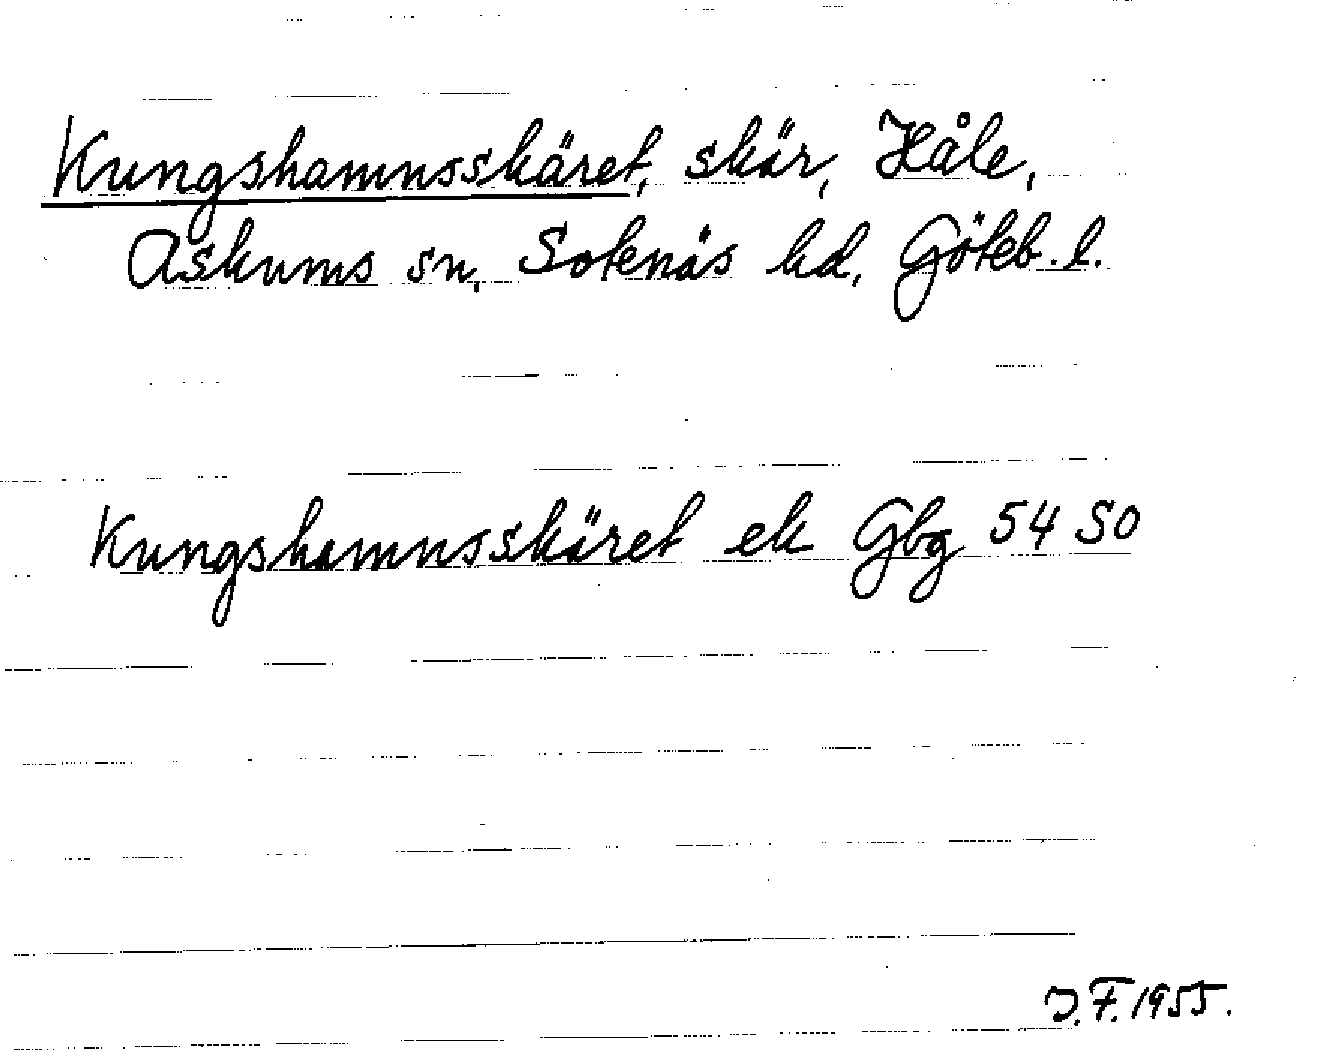 Kungshamnsskäret, skär, Håle,
Askums sn, Sotenäs hd, Göteb. l.
Kungshamnsskäret ek Gbg 54 SO
J.F. 1955.